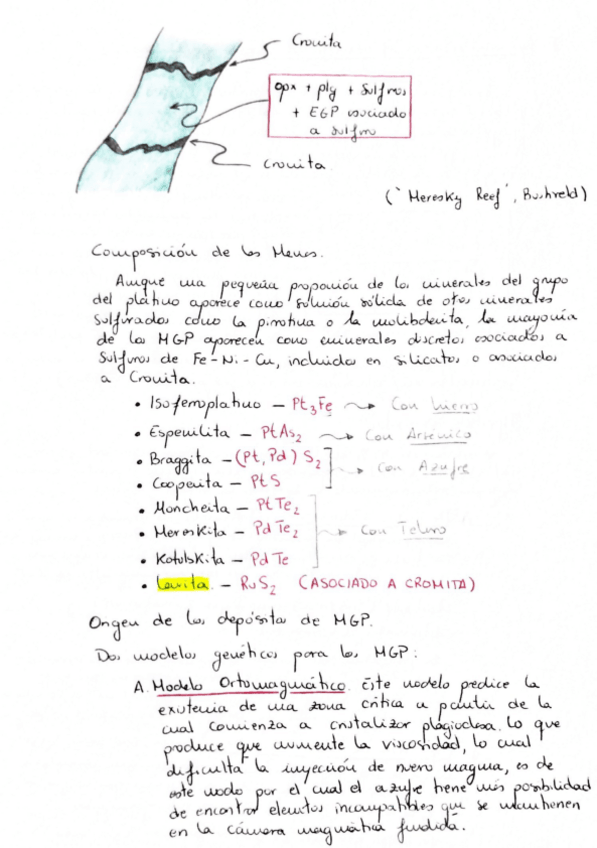 Cromita
opx + plg + Sulfuros
+ EGP asociado
a sulfuro
Cromita
("Meresky Reef", Bushveld)
Composición de las Menas.
Aunque una pequeña proporción de los minerales del grupo
del platino aparece como solución sólida de otros minerales
sulfurados como la pirrotina o la molibdenita, la mayoría
de los MGP aparecen como minerales discretos asociados a
Sulfuros de Fe-Ni-Cu, incluidos en silicatos o asociados
a Cromita.
• Isoferroplatino – Pt3Fe → Con hierro
• Esperrilita – PtAs2 → Con Arsénico
• Braggita – (Pt, Pd) S2
→ Con Azufre
• Cooperita – PtS
• Moncheita – PtTe2
• Mereskita – PdTe2 → Con Teluro
• Kotulskita – PdTe
• Laurita – RuS2 (ASOCIADO A CROMITA)
Origen de los depósitos de MGP.
Dos modelos genéticos para los MGP:
A. Modelo Ortomagmático. Este modelo predice la
existencia de una zona crítica a partir de la
cual comienza a cristalizar plagioclasa. Lo que
produce que aumente la viscosidad, lo cual
dificulta la inyección de nuevo magma, es de
este modo por el cual el azufre tiene más posibilidad
de encontrar elementos incompatibles que se mantienen
en la cámara magmática fundida.